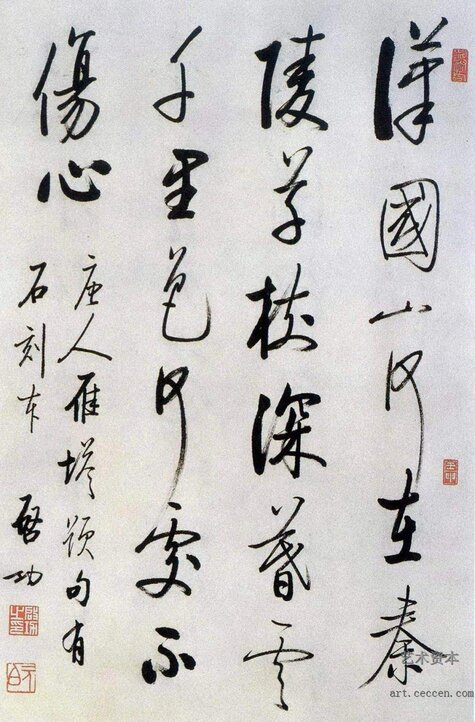 漢國山河在秦
陵草樹深暮雲
千里色何處不
傷心
唐人雁塔題句有
石刻本 啓功
啟功之印
元白
艺术资本
art.ceccen.com